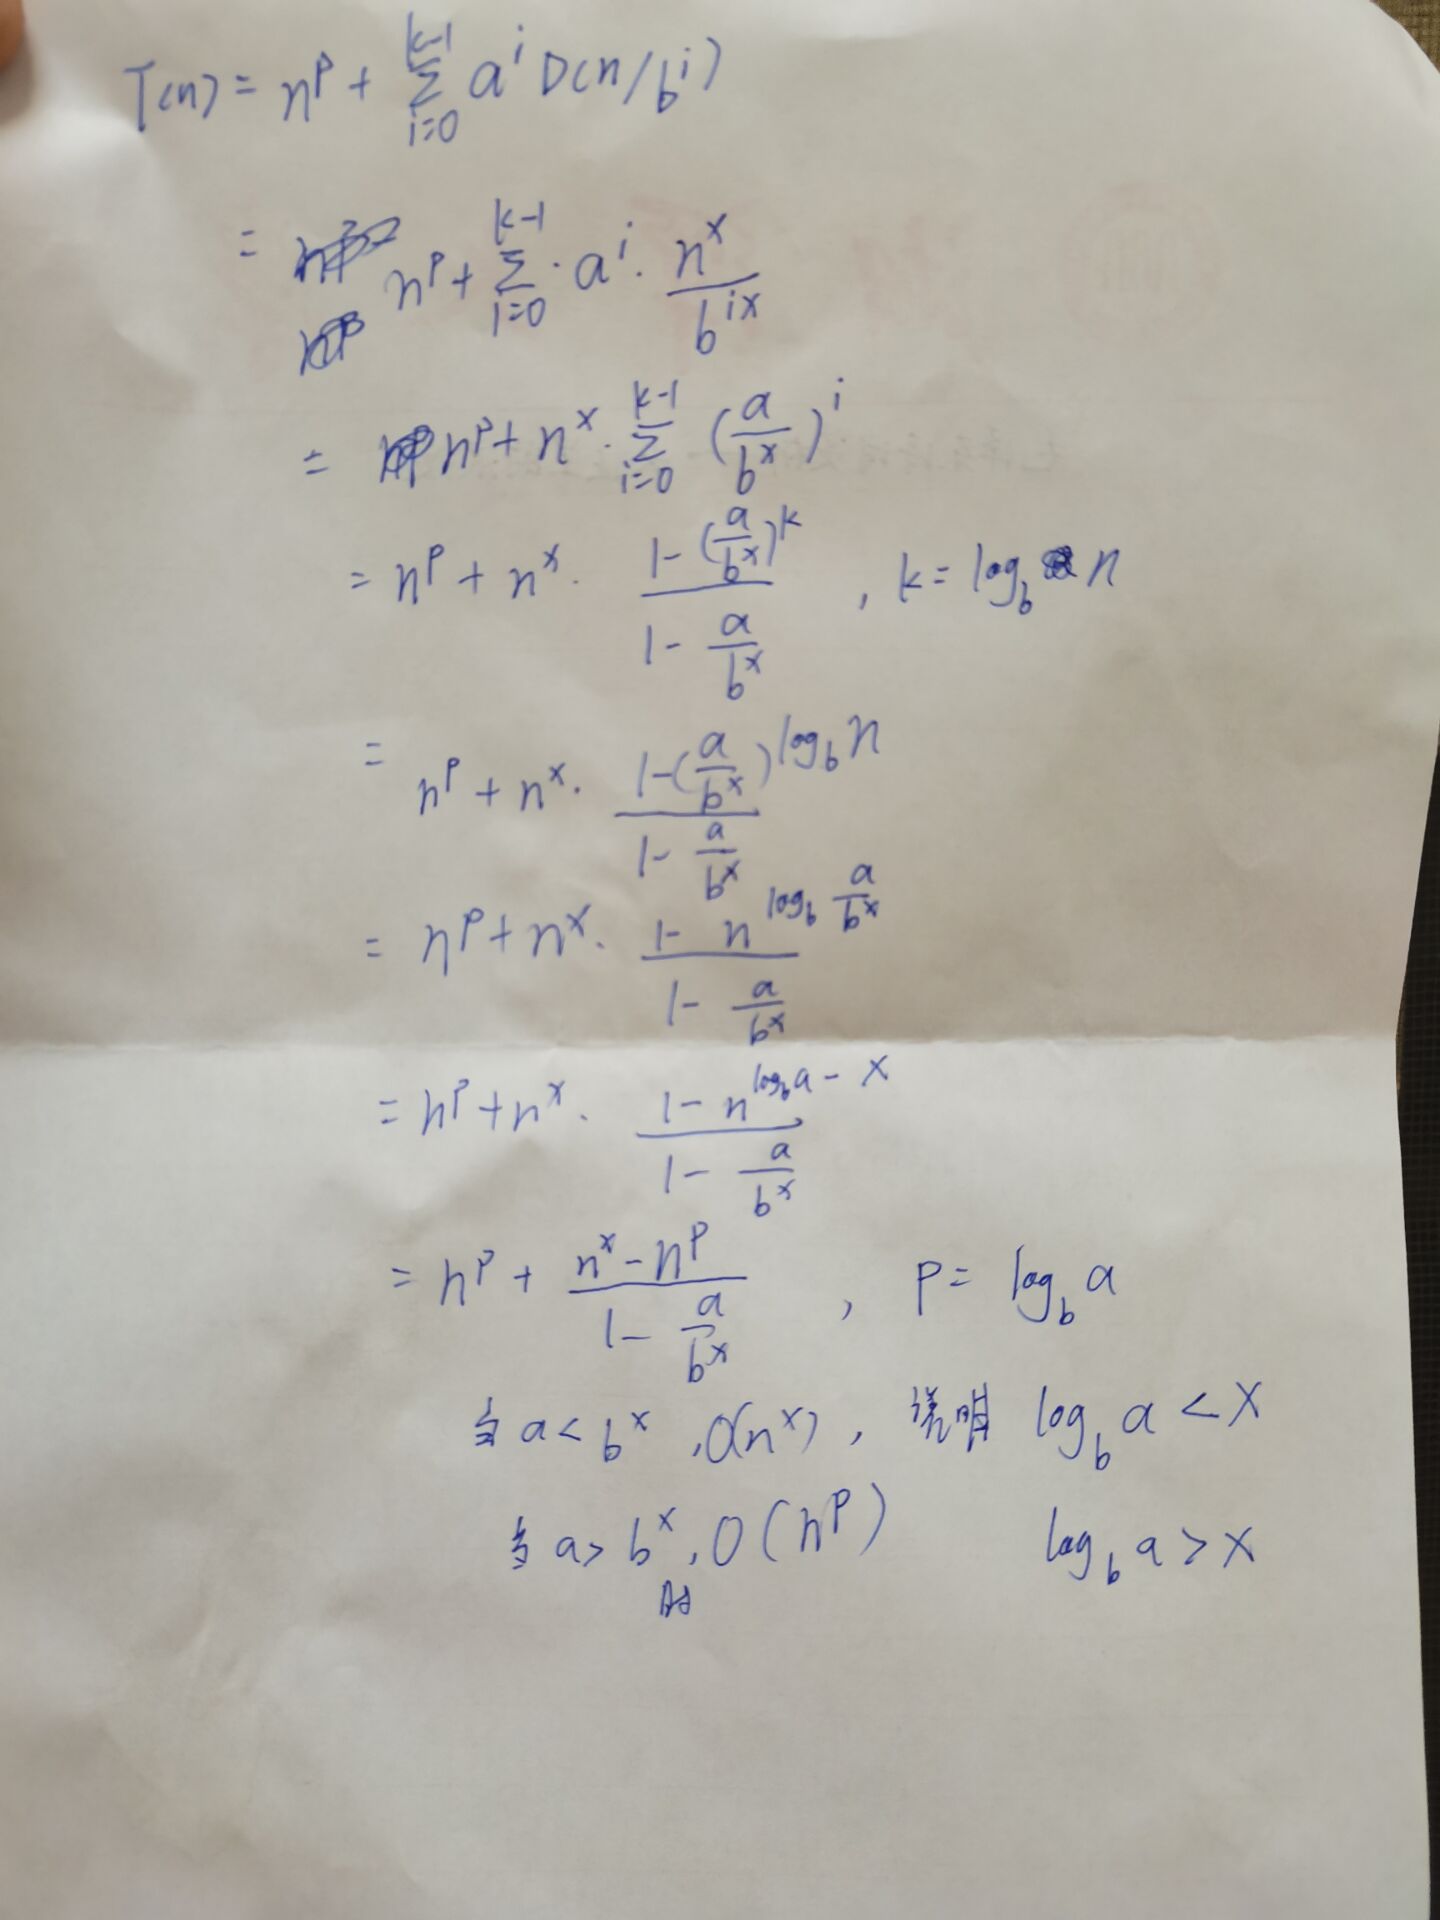 T(n) = n^p + ∑_{i=0}^{k-1} a^i D(n/b^i)
= n^p + ∑_{i=0}^{k-1} · a^i · \frac{n^x}{b^{ix}}
= n^p + n^x · ∑_{i=0}^{k-1} (\frac{a}{b^x})^i
= n^p + n^x · \frac{1-(\frac{a}{b^x})^k}{1-\frac{a}{b^x}} , k = log_b n
= n^p + n^x · \frac{1-(\frac{a}{b^x})^{log_b n}}{1-\frac{a}{b^x}}
= n^p + n^x · \frac{1-n^{log_b \frac{a}{b^x}}}{1-\frac{a}{b^x}}
= n^p + n^x · \frac{1-n^{log_b a - x}}{1-\frac{a}{b^x}}
= n^p + \frac{n^x - n^p}{1-\frac{a}{b^x}} , p = log_b a
当 a < b^x , O(n^x) , 说明 log_b a < x
当 a > b^x 时, O(n^p) log_b a > x